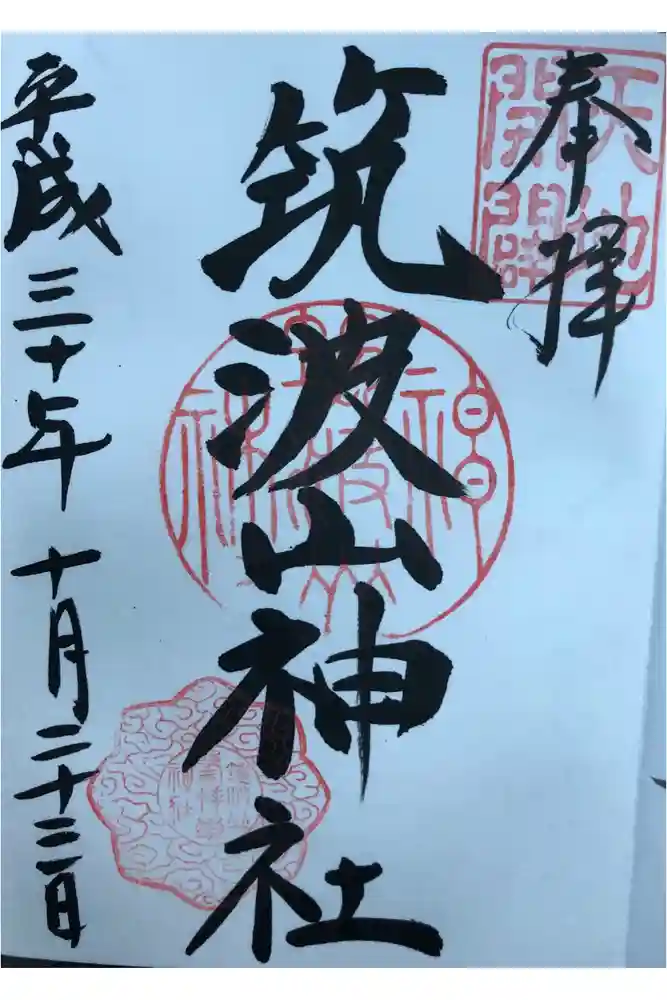 奉拝
天地
開闢
筑波山神社
平成三十年十月二十三日